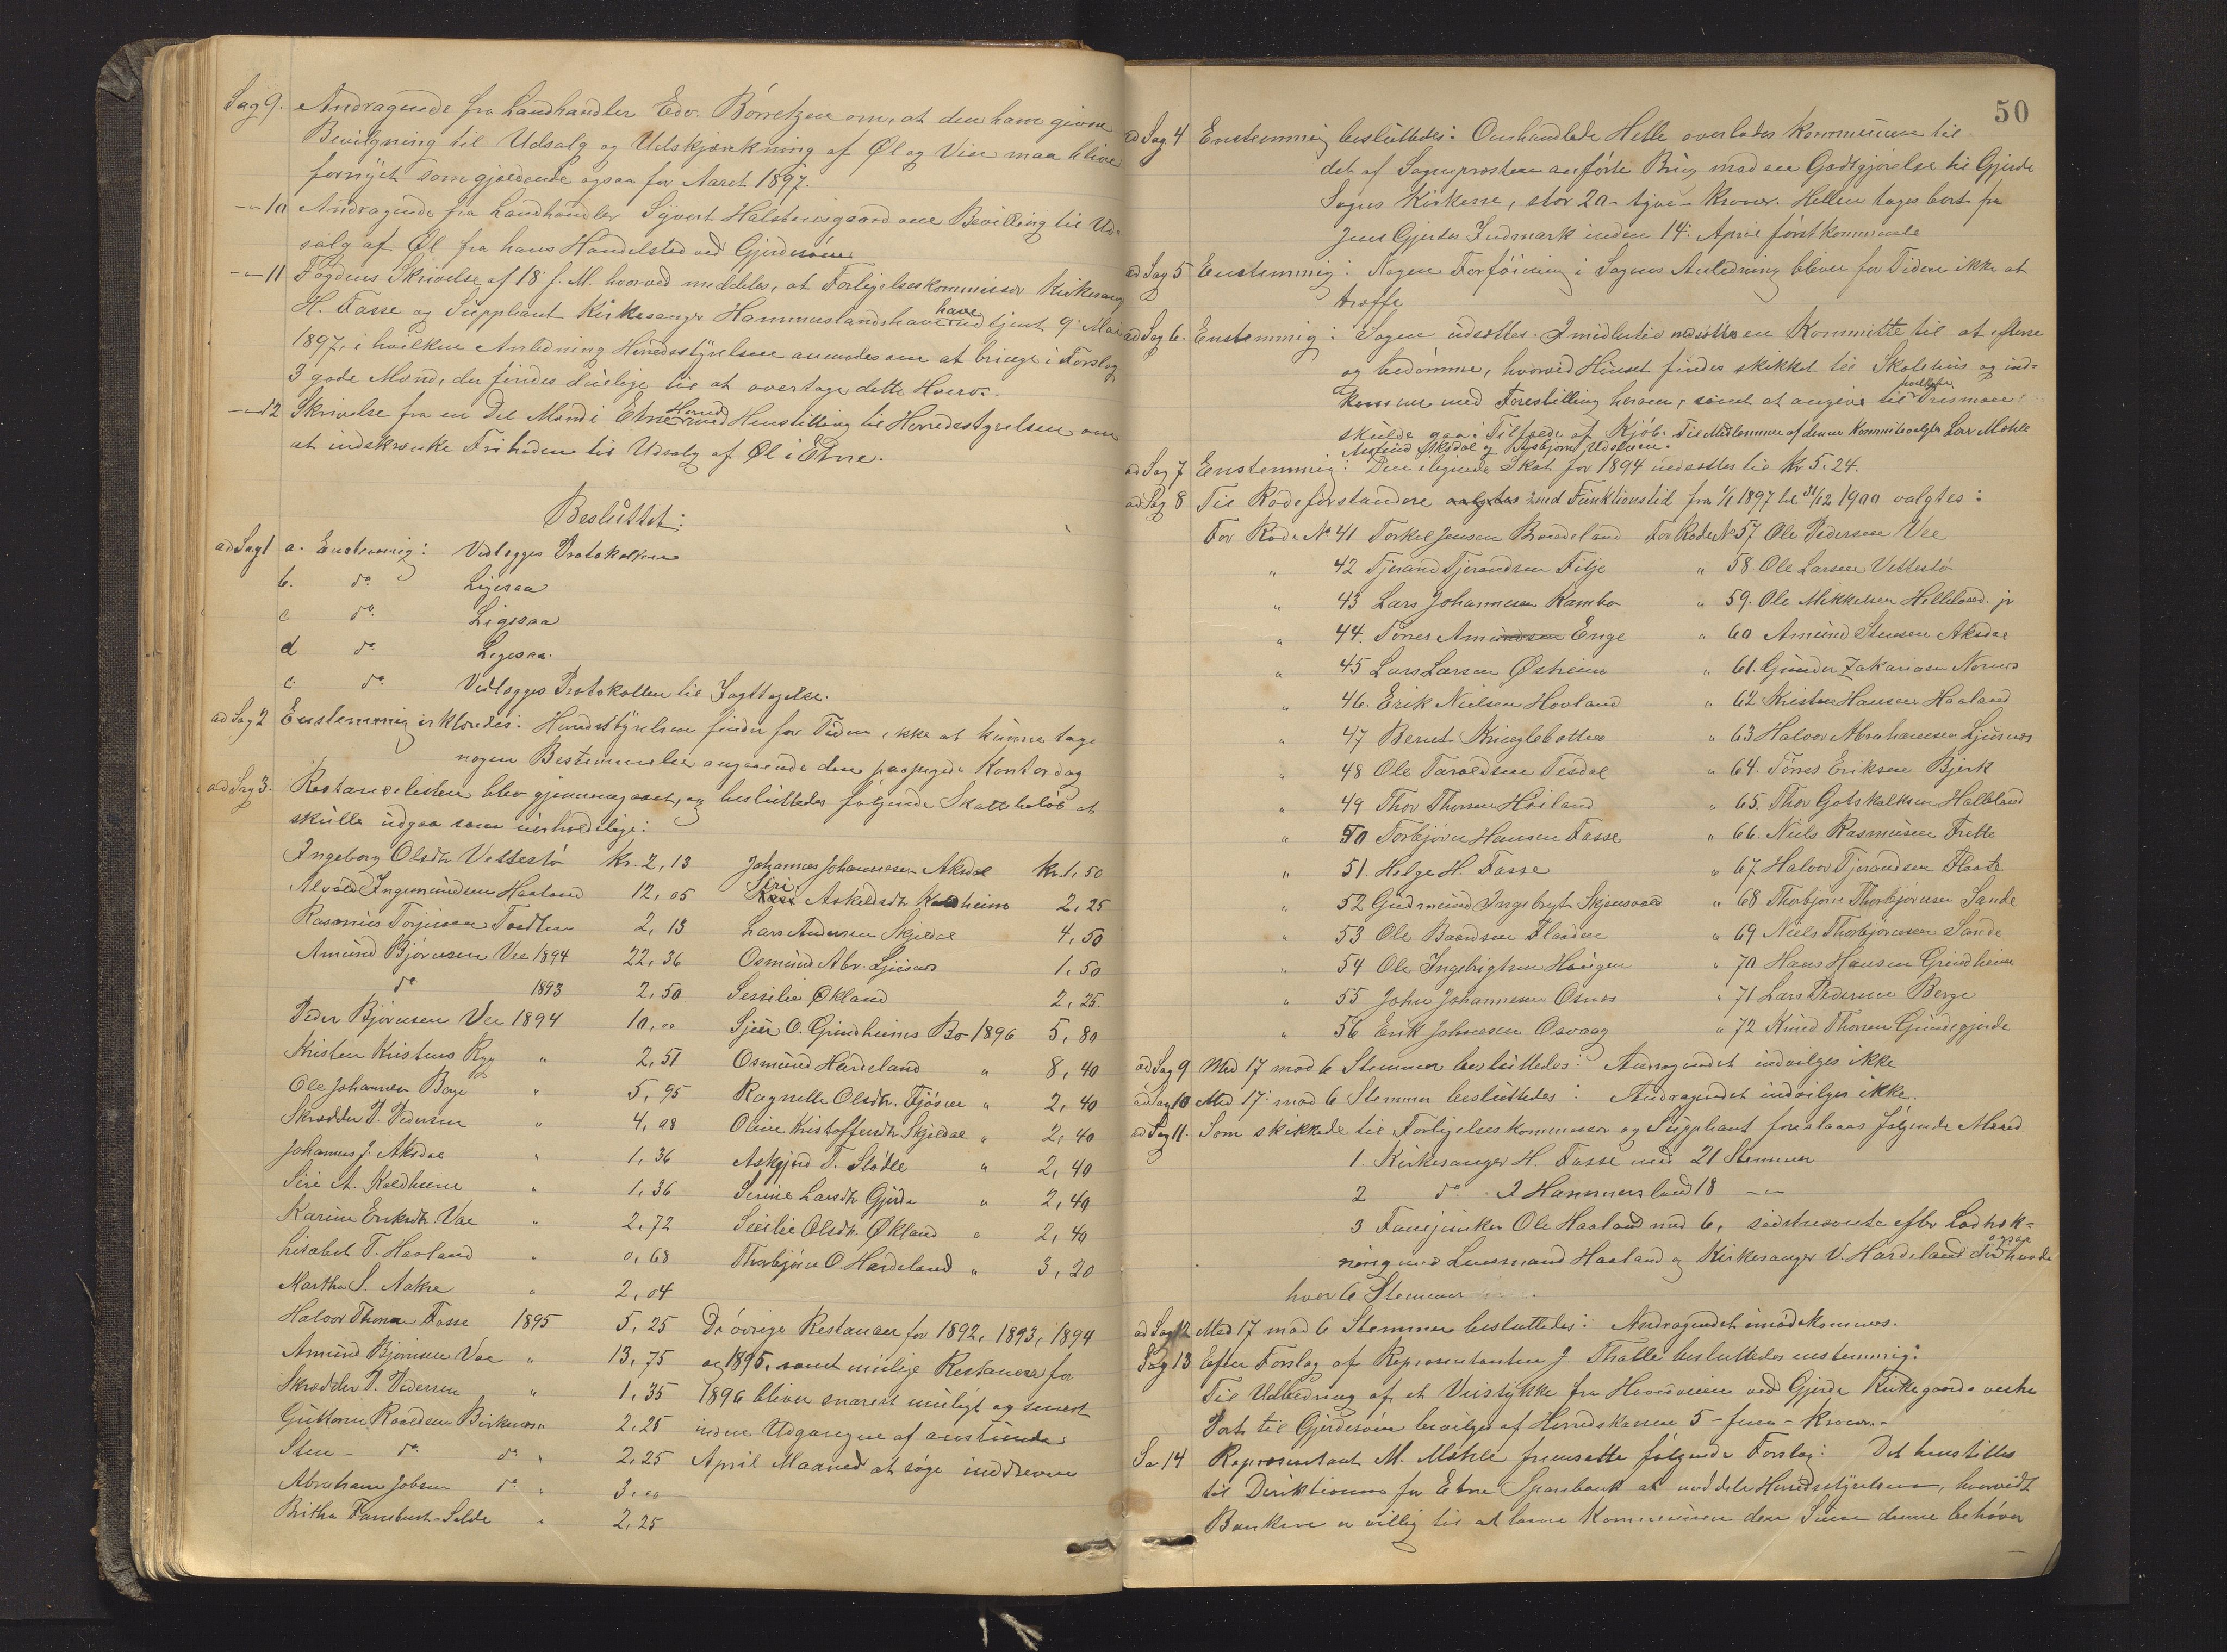 Sag 9. Andragende fra Landhandler Edv. Børretzen om, at den ham givne
Bevilgning til Udsalg og Udskjænkning af Øl og Vin maa blive
fornyet som gjældende ogsaa for Aaret 1897.
-"-10 Andragende fra Landhandler Sjovert Halsteinsgaard om Bevilling til Ud-
salg af Øl fra hans Handelssted ved Gjerdesøen
-"-11 Fogdens Skrivelse af 18' f. M. hvorved meddeles, at Forligelseskommissær Kirkesanger
H. Fasse og Suppleant Kirkesanger Hammersland have udtjent 9' Mai
1897, i hvilken Anledning Herredsstyrelsen anmodes om at bringe i Forslag
3 gode Mænd, der findes duelige til at overtage dette Hverv.
-"-12 Skrivelse fra en Del Mænd i Etne Herred med Henstilling til Herredsstyrelsen om
at indskrænke Friheden til Udsalg af Øl i Etne.
Besluttet:
ad Sag 1 a. Enstemmig: Vedlægges Protokollen
b. do Ligesaa
c do Ligesaa
d do Ligesaa.
e. do Vedlægges Protokollen til Iagttagelse.
ad Sag 2 Enstemmig erklæredes: Herredsstyrelsen finder for Tiden ikke at kunne tage
nogen Bestemmelse angaaende den paapegede Kontordag
ad Sag 3. Restancelisten blev gjennemgaaet, og besluttedes følgende Skattebeløb at
skulle udgaa som uerholdelige:
Ingeborg Olsdtr Vettestø Kr. 2,13 Johannes Johannesen Aksdal Kr. 1,50
Alvald Ingemundsen Haaland 12,05 Siri Askeldsdtr Kaldheim 2,25
Rasmus Torjussen 2,13 Lars Andersen Skjeldal 4,50
Amund Bjørnsen Vee 1894 22,36 Osmund Abr. Ljusnes 1,50
do 1893 2,50 Sessilie Økland 2,25.
Peder Bjørnsen Vee 1894 10,00 Sjur O. Grindheims Bo 1896 5,80
Kristen Kristens Ryg " 2,51 Osmund Hardeland " 8,40
Ole Johannesen Berge " 5,95 Ragnille Olsdtr. Fjøsne " 2,40
Skrædder P. Pedersen " 4,08 Oline Kristoffersdtr Skjeldal " 2,40
Johannes J. Aksdal " 1,36 Askjerd T. Sløtte " 2,40
Siri A. Kaldheim " 1,36 Serine Larsdtr Gjerde " 2,40
Karine Eriksdtr. Vae " 2,72 Secilie Olsdtr. Økland " 2,40
Lisabet T. Haaland " 0,68 Thorbjørn O. Hardeland " 3,20
Martha S. Aakre " 2,04
Halvor Thorsen Fasse 1895 5,25 De øvrige Restancer for 1892, 1893, 1894
Amund Bjørnsen Vae " 13,75 og 1895, samt mulige Restancer for
Skrædder P. Pedersen " 1,35 1896 bliver snarest muligt og senest
Guttorm Roaldsen Birkenæs " 2,25 inden Udgangen af anstundende
Sten - do do " 2,25 April Maaned at søge inddrevne
Abraham Jobsen do " 3,00
Britha Selde " 2,25
50
ad Sag 4 Enstemmig besluttedes: Omhandlede Helle overlades Kommunen til
det af Sogneprosten anførte Brug mod en Godtgjørelse til Gjerde
Sogns Kirkesse, stor 20 - tyve - Kroner. Hellen tages bort fra
Jens Gjerdes Indmark inden 14' April førstkommende
ad Sag 5 Enstemmig: Nogen Forføining i Sagens Anledning bliver for Tiden ikke at
træffe
ad Sag 6. Enstemmig: Sagen udsættes. Imidlertid nedsættes en Kommitte til at efterse
og bedømme, hvorvid Huset findes skikket til Skolehus og ind-
komme med Forestilling herom, samt at angive til Prisen
skulde gaa i Tilfælde af Kjøb. Til Medlemmer af denne Kommite valgtes Lars Mæhle
Amund Aksdal og Asbjørn
ad Sag 7 Enstemmig: Den ilignede Skat for 1894 nedsættes til Kr 5.24.
ad Sag 8 Til Rodeforstandere valgtes med Funktionstid fra 1/1 1897 til 31/12 1900 valgtes:
For Rode No 41 Torkel Jensen Brondeland For Rode No 57 Ole Pedersen Vee
" 42 Tjerand Tjerandsen Fitje " 58 Ole Larsen Vettestø
" 43 Lars Johannesen Rambo " 59. Ole Mikkelsen Helleland jr
" 44. Tørres Amundsen Enge " 60 Amund Stensen Aksdal
" 45 Lars Larsen Østrem " 61. Gunder Zakariasen Nornes
" 46. Erik Nielsen Hovland " 62 Kristen Hansen Haaland
" 47 Bernt Kringlebotten " 63 Halvor Abrahamsen Ljusnes
" 48 Ole Taraldsen Tesdal " 64. Tørres Eriksen Bjerk
" 49 Thor Thorsen Høiland " 65. Thor Gotskalksen Halleland
" 50 Torbjørn Hansen Fasse " 66. Niels Rasmussen Frette
" 51 Helge H. Fasse " 67 Halvor Tjerandsen Flaate
" 52 Gudmund Ingebrigt. Skjensvold " 68 Thorbjørn Thorbjørnsen Sande
" 53 Ole Baardsen Flaaden " 69 Niels Thorbjørnsen Sande
" 54 Ole Ingebrigtsen Haugen " 70 Hans Hansen Grindheim
" 55 John Johannesen Osnes " 71 Lars Pedersen Berge
" 56 Erik Johnesen Osvaag " 72 Knud Thorsen Gundegjerde
ad Sag 9 Med 17 mod 6 Stemmer besluttedes: Andragendet indvilges ikke
ad Sag 10 Med 17 mod 6 Stemmer besluttedes: Andragendet indvilges ikke.
ad Sag 11. Som skikkede til Forligelseskommissær og Suppleant foreslaaes følgende Mænd
1. Kirkesanger H. Fasse med 21 Stemmer
2 do I Hammersland 18 -"-
3 Fanejunker Ole Haaland med 6, sidstnævnte efter Lodtræk-
ning med Lensmand Haaland og Kirkesanger V. Hardeland der ogsaa havde
hver 6 Stemmer
ad Sag 12 Med 17 mod 6 Stemmer besluttedes: Andragendet imødekommes.
Sag 13 Efter Forslag af Repræsentanten J. Thalle besluttedes enstemmig:
Til Udbedring af et Veistykke fra Hovedveien ved Gjerde Kirkegaards vestre
Port til Gjerdesøen bevilges af Herredskassen 5 - fem - Kroner.
Sa 14 Repræsentant M. Mæhle fremsatte følgende Forslag: Det henstilles
til Direktionen for Etne Sparebank at meddele Herredsstyrelsen, hvorvidt
Banken er villig til at laane Kommunen den Sum denne behøver